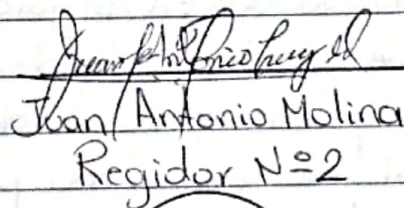 Juan Antonio Molina
Regidor Nº2